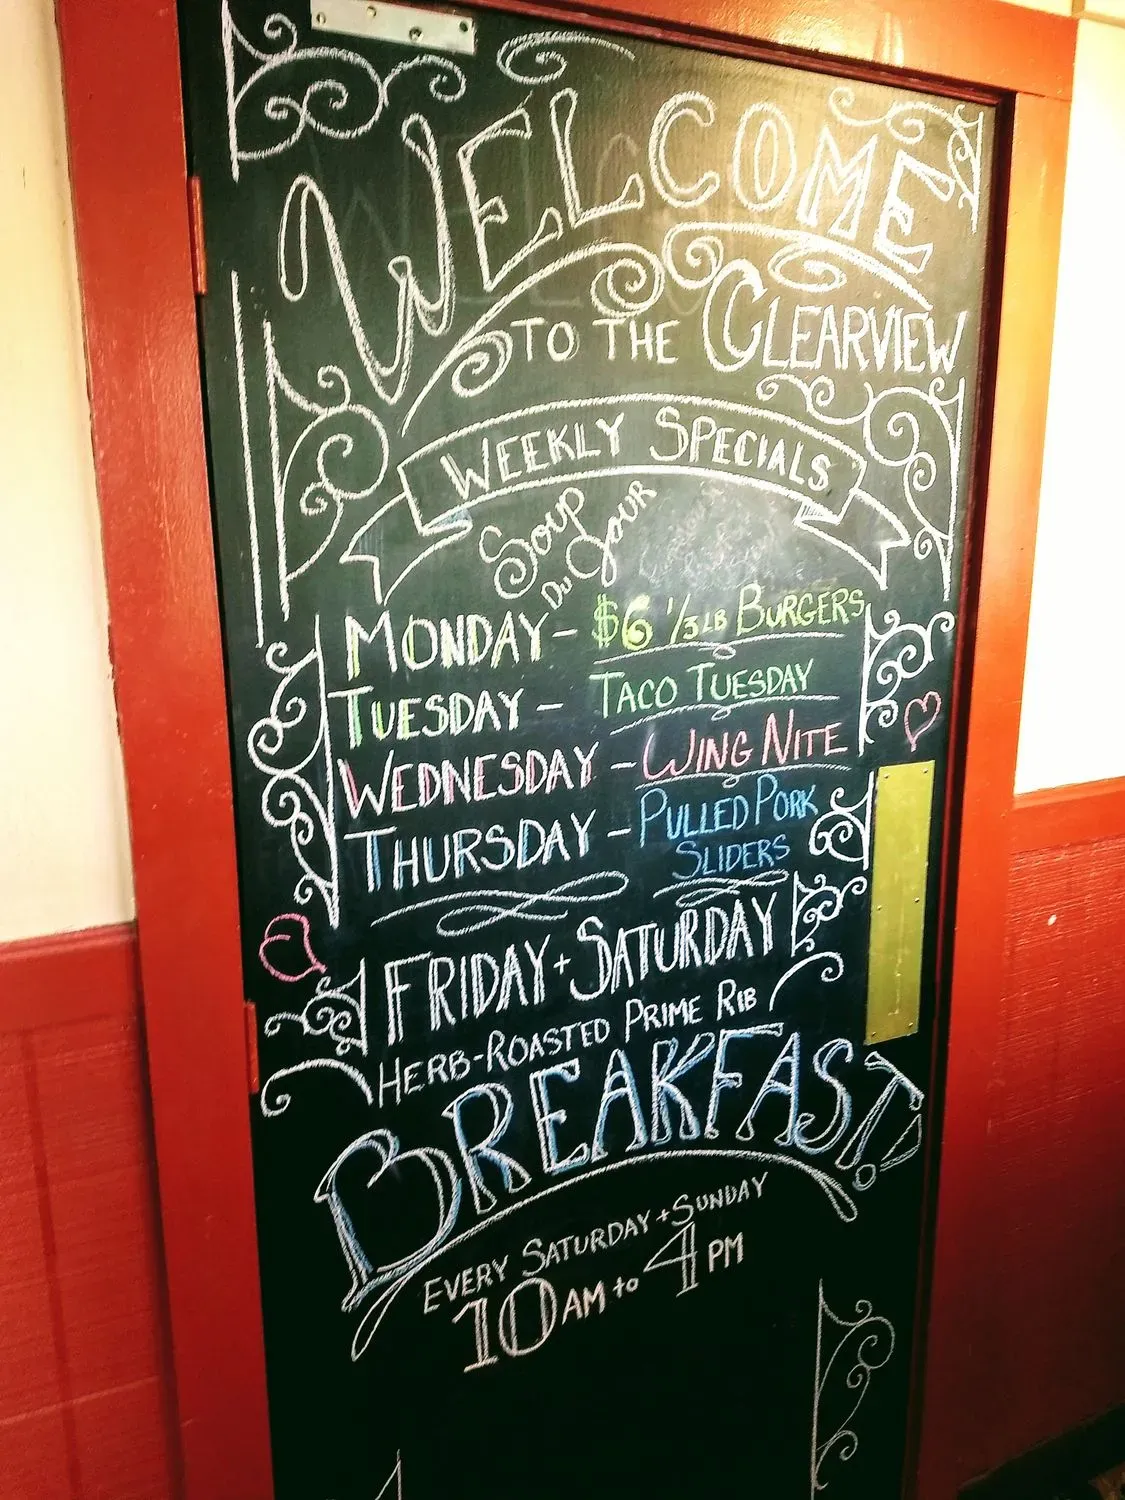 WELCOME
TO THE CLEARVIEW
WEEKLY SPECIALS
SOUP DU JOUR
MONDAY - $6 1/3 LB BURGERS
TUESDAY - TACO TUESDAY
WEDNESDAY - WING NITE
THURSDAY - PULLED PORK
SLIDERS
FRIDAY + SATURDAY
HERB-ROASTED PRIME RIB
BREAKFAST!
EVERY SATURDAY + SUNDAY
10 AM to 4 PM